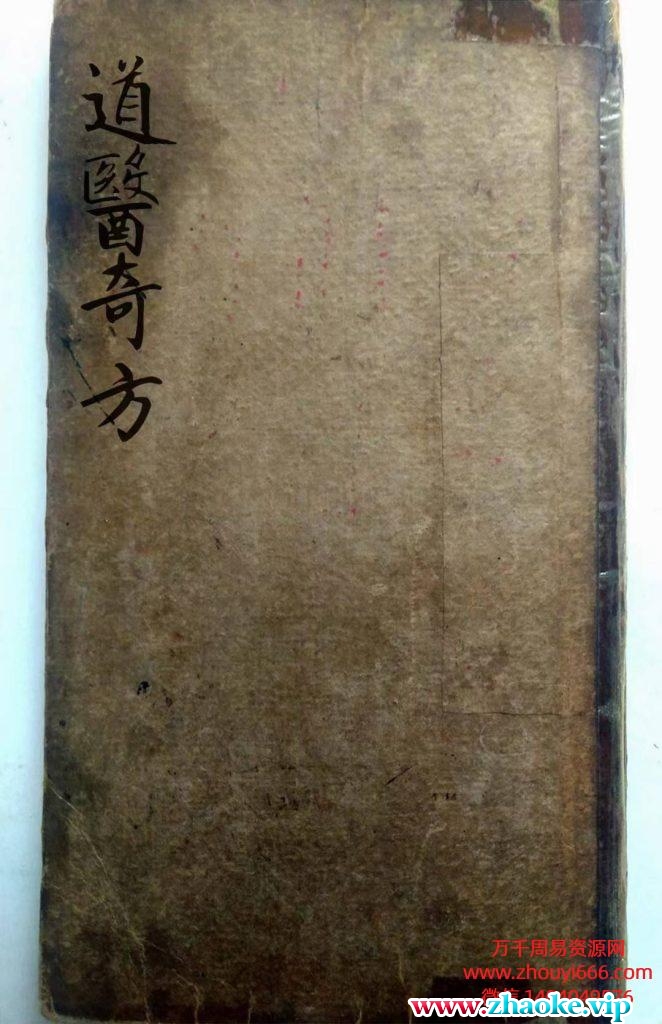 道醫奇方
万千周易资源网
www.zhouyi666.com
www.zhaoke.vip